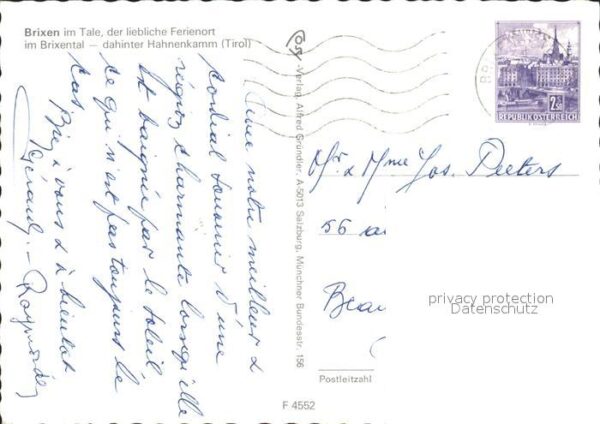 Brixen im Tale, der liebliche Ferienort
im Brixental — dahinter Hahnenkamm (Tirol)
notre meilleur &
cordial souvenir d'une
région charmante lorsqu'elle
est baignée par le soleil,
ce qui n'est pas toujours le
cas
Biz à vous 2 à bientôt
Gérard. -
Cosy-Verlag Alfred Gründler, A-5013 Salzburg, Münchner Bundesstr. 156
2.50
REPUBLIK ÖSTERREICH
Mr & Mme Jos. Peeters
56
Beau
privacy protection
Datenschutz
Postleitzahl
F 4552